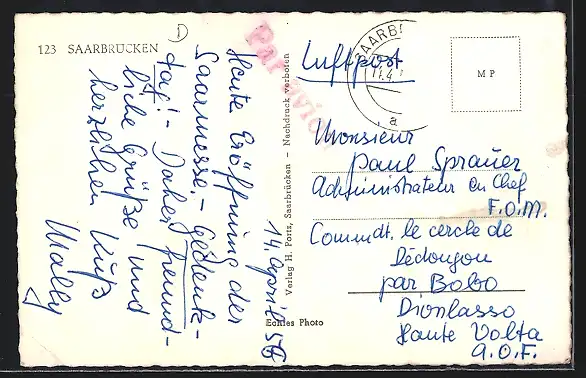 123 SAARBRÜCKEN
D
14. April 56
Heute Eröffnung der
Saarmesse. - Gedenk-
tag! - Daher freund-
liche Grüße und
herzlichen Kuß
Wally
Verlag H. Portz, Saarbrücken - Nachdruck verboten
Echtes Photo
Par avion
Luftpost
SAARB
11.4
a
MP
Monsieur
Paul Sprauer
Administrateur en Chef
F.O.M.
Commdt. le cercle de
Dédougou
par Bobo
Dioulasso
Haute Volta
A.O.F.